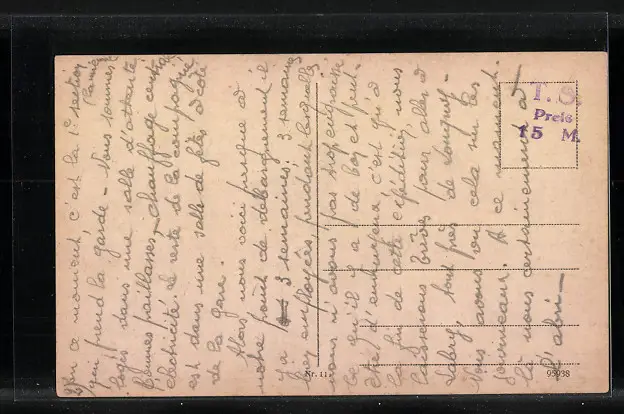 En ce moment c'est la 1e section
qui prend la garde - Nous sommes
logés dans une salle d'attente
bonnes paillasses, chauffage central
électricité. Le reste de la compagnie
est dans une salle de fêtes à côté
de la gare.
Alors nous voici jusque à
notre point de débarquement il
y a 3 semaines. 3 semaines
bien employées pendant lesquelles
nous n'avons pas
ce qu'il y a de bon et peut-
être d'ennuyeux c'est qu'à
la fin de cette expédition, nous
laisserons pour aller à
tout près de Longwy -
Nous avons vu cela sur les
journaux. A ce moment-
là nous certainement à
l'abri -
T. S.
Preis
15 M.
Nr. 11.
95938